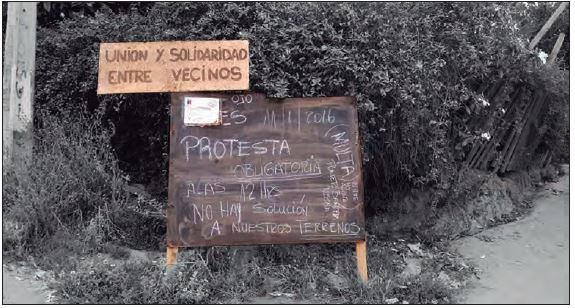 UNION Y SOLIDARIDAD
ENTRE VECINOS
OJO
ES 11/1/2016
PROTESTA
OBLIGATORIA
ALAS 12 Hrs
NO HAY Solución
A NUESTROS TERRENOS